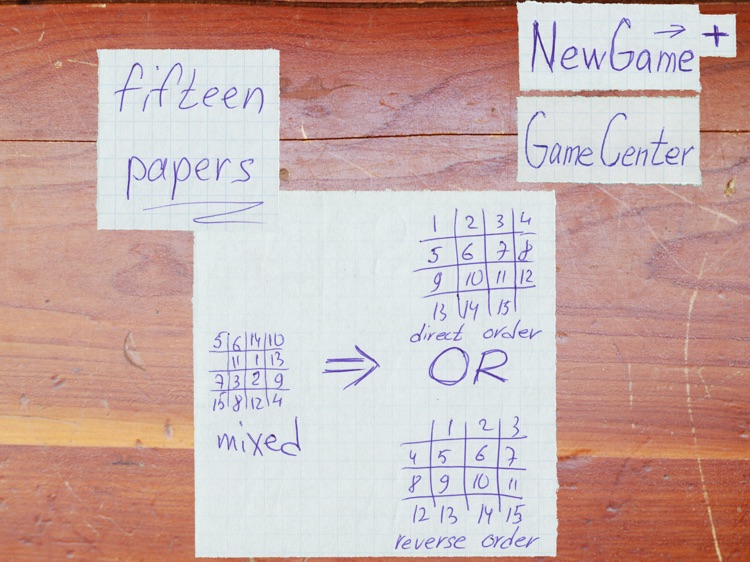 fifteen
papers
NewGame → +
GameCenter
5 6 14 10
11 1 13
7 3 2 9
15 8 12 4
mixed
⇒
1 2 3 4
5 6 7 8
9 10 11 12
13 14 15
direct order
OR
1 2 3
4 5 6 7
8 9 10 11
12 13 14 15
reverse order